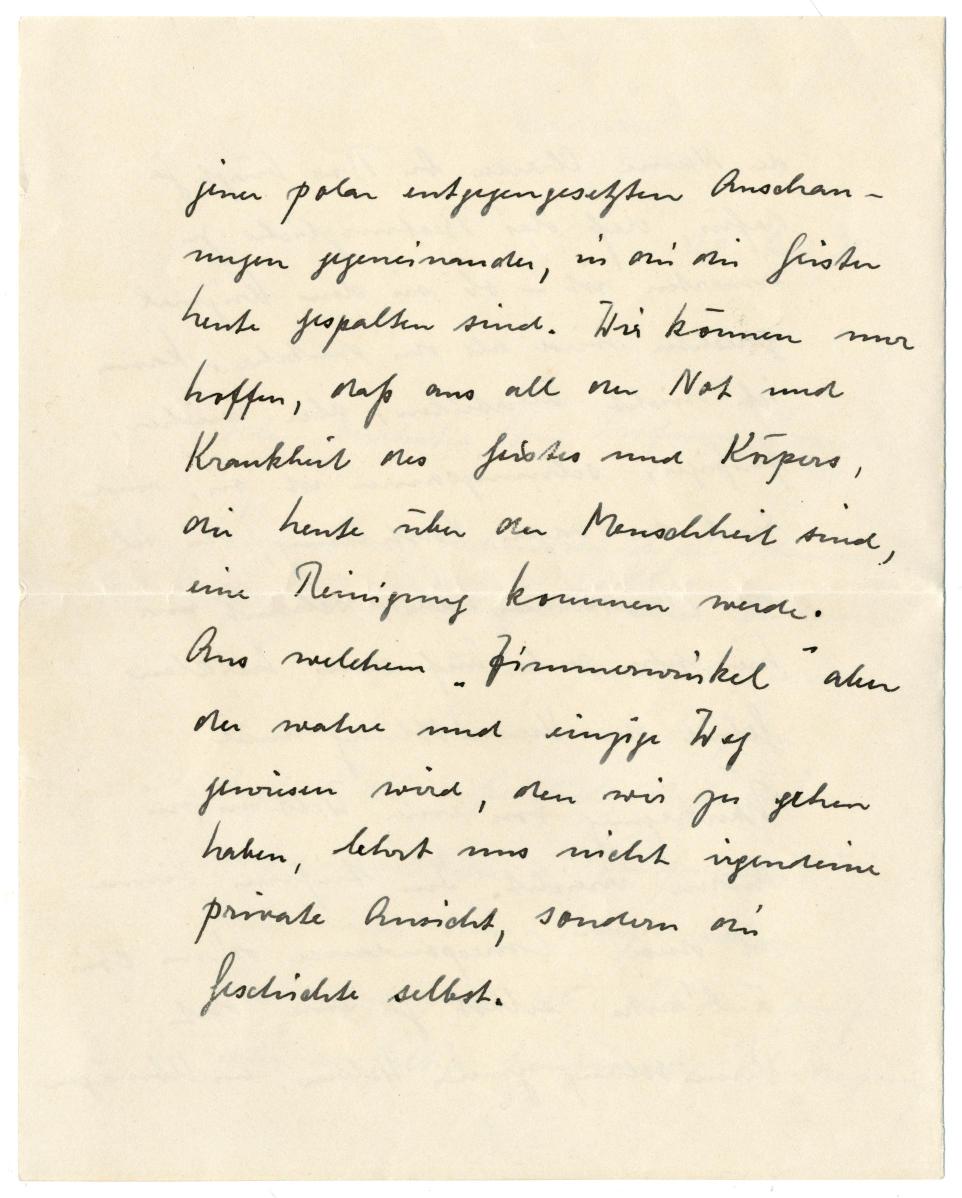 jener polar entgegengesetzten Anschau-
ungen gegeneinander, in die die Geister
heute gespalten sind. Wir können nur
hoffen, daß aus all der Not und
Krankheit des Geistes und Körpers,
die heute über der Menschheit sind,
eine Reinigung kommen werde.
Aus welchem „Zimmerwinkel" aber
der wahre und einzige Weg
gewiesen wird, den wir zu gehen
haben, lehrt uns nicht irgendeine
private Ansicht, sondern die
Geschichte selbst.